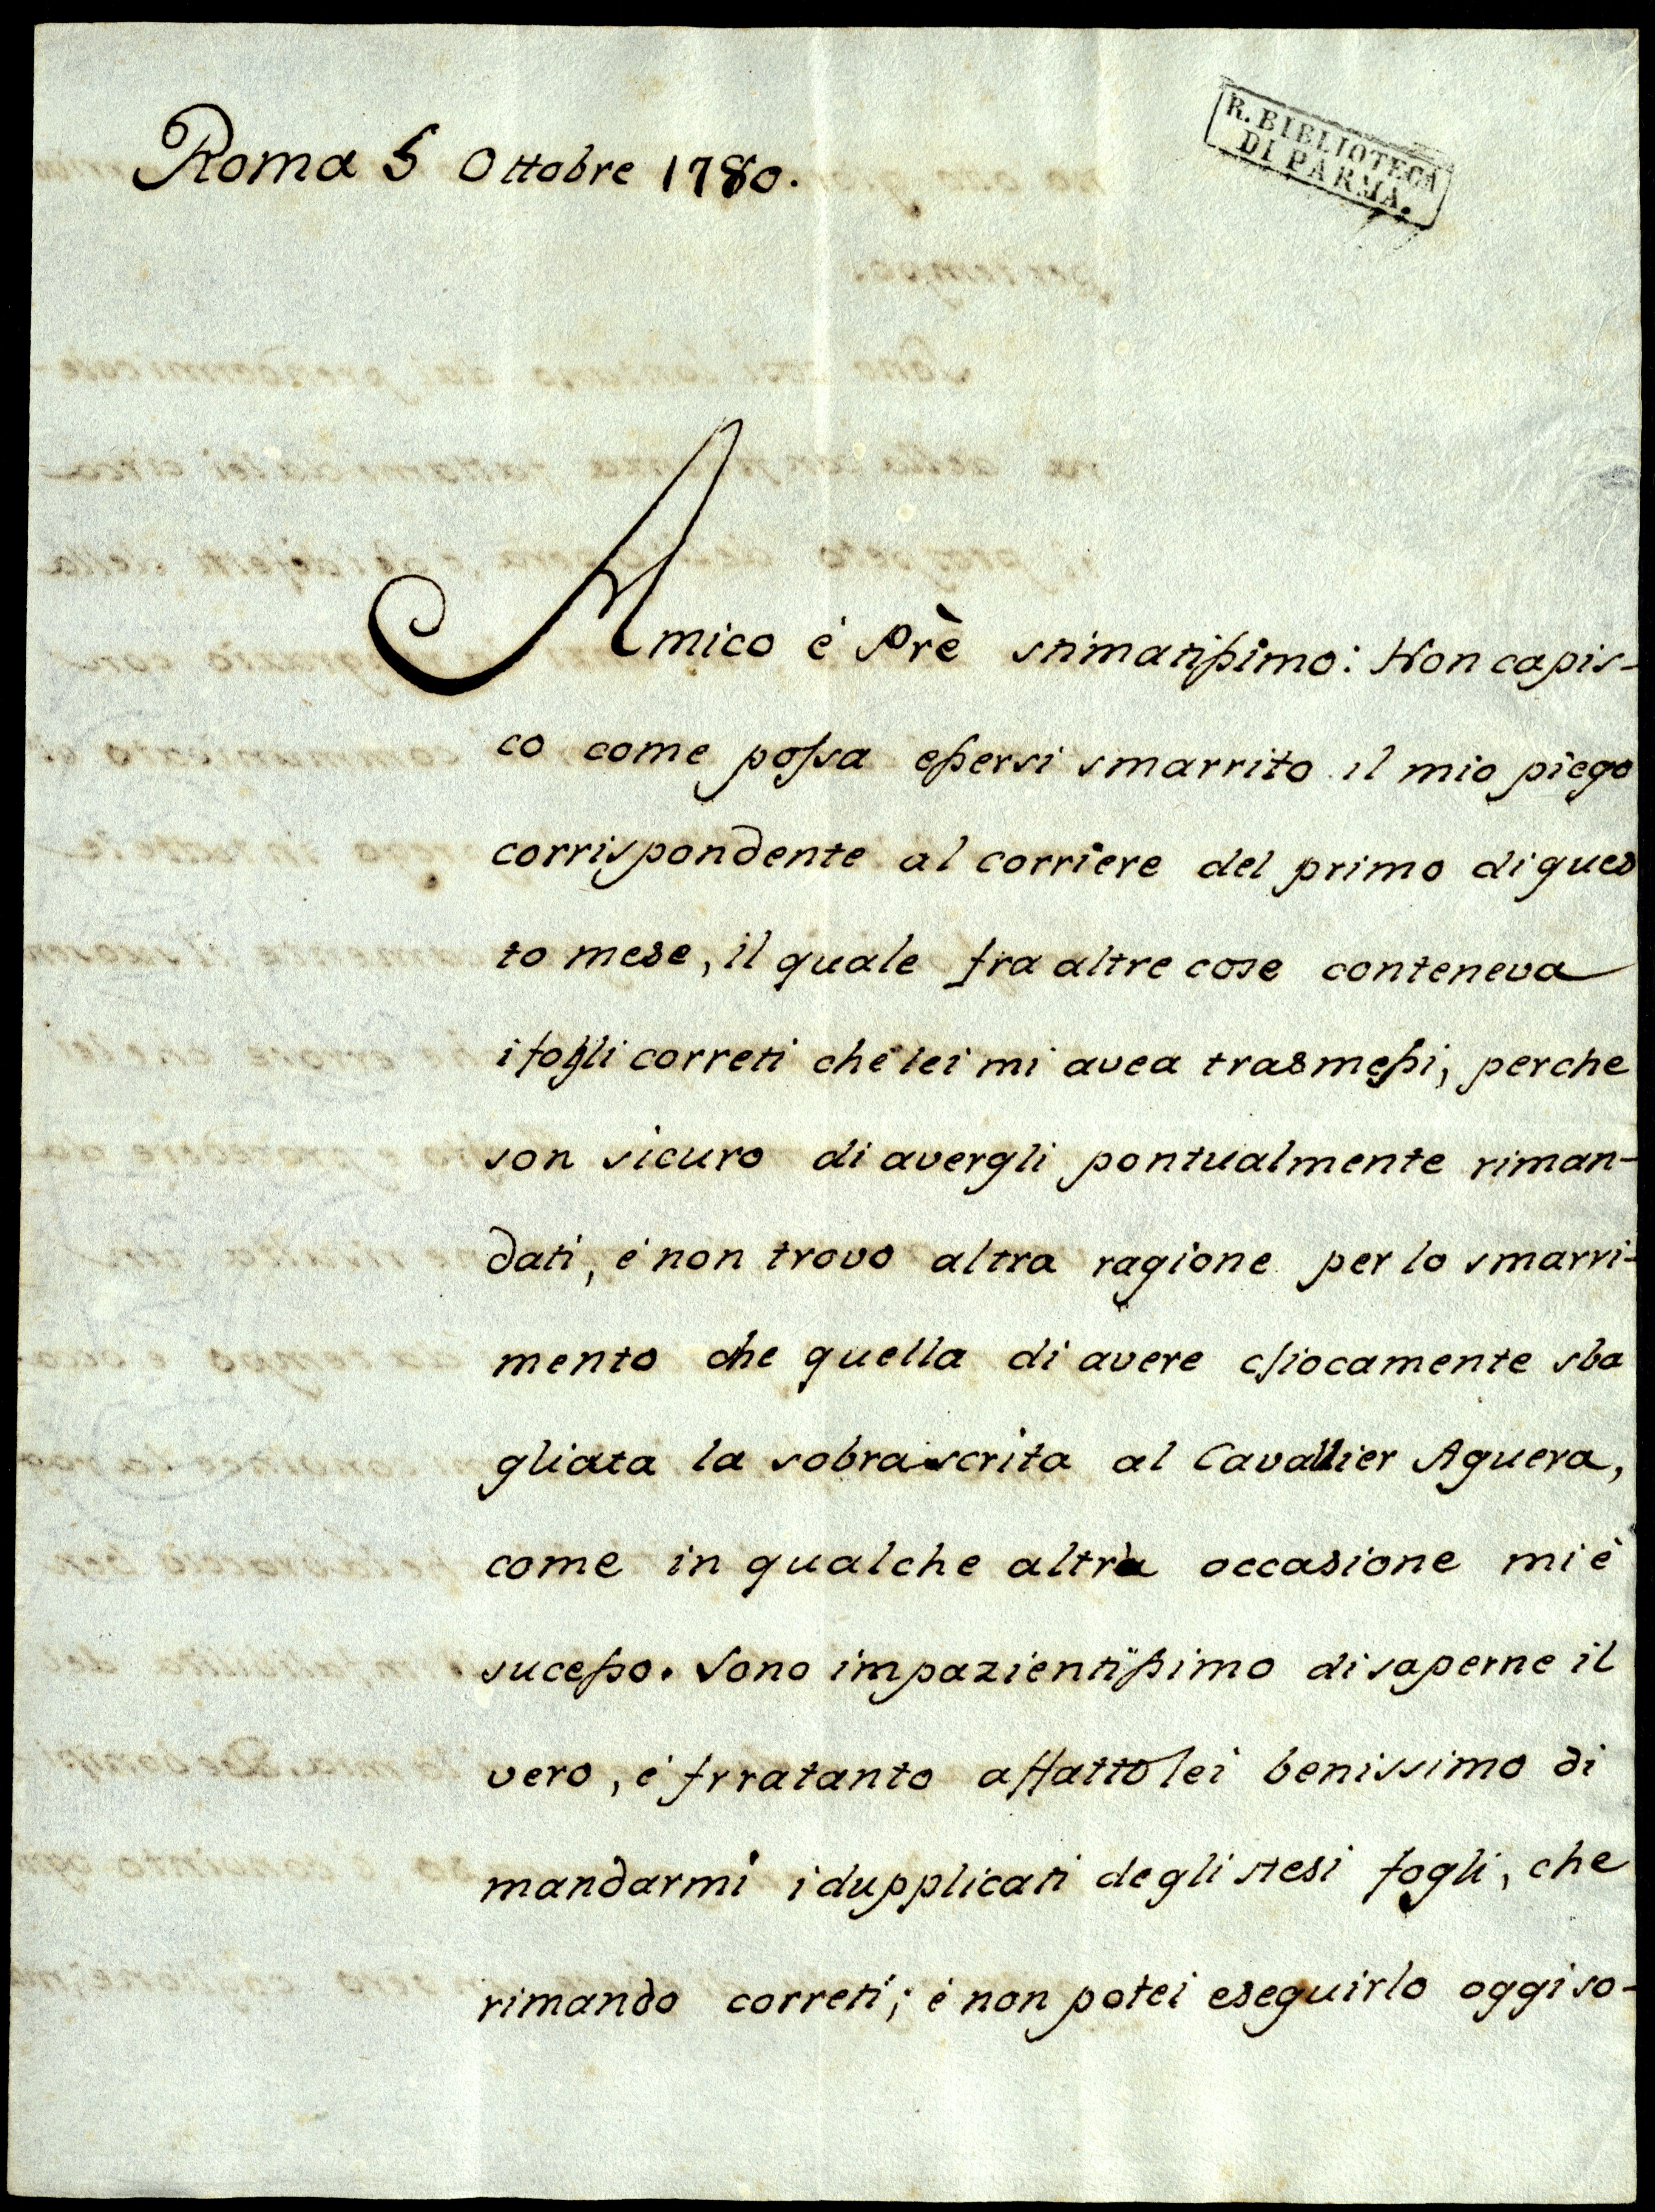 Roma 5 Ottobre 1780.
R. BIBLIOTECA
DI PARMA.
Amico é Prè stimatissimo: Non capis-
co come possa essersi smarrito il mio piego
corrispondente al corriere del primo di ques
to mese, il quale fra altre cose conteneva
i fogli correti che lei mi avea trasmessi, perche
son sicuro di avergli pontualmente riman-
dati, é non trovo altra ragione per lo smarri-
mento che quella di avere sciocamente sba
gliata la sobrascrita al Cavallier Aguera,
come in qualche altra occasione mi è
sucesso. Sono impazientissimo di saperne il
vero, é frratanto a fatto lei benissimo di
mandarmi i dupplicati degli stesi fogli, che
rimando correti; é non potei eseguirlo oggi so-